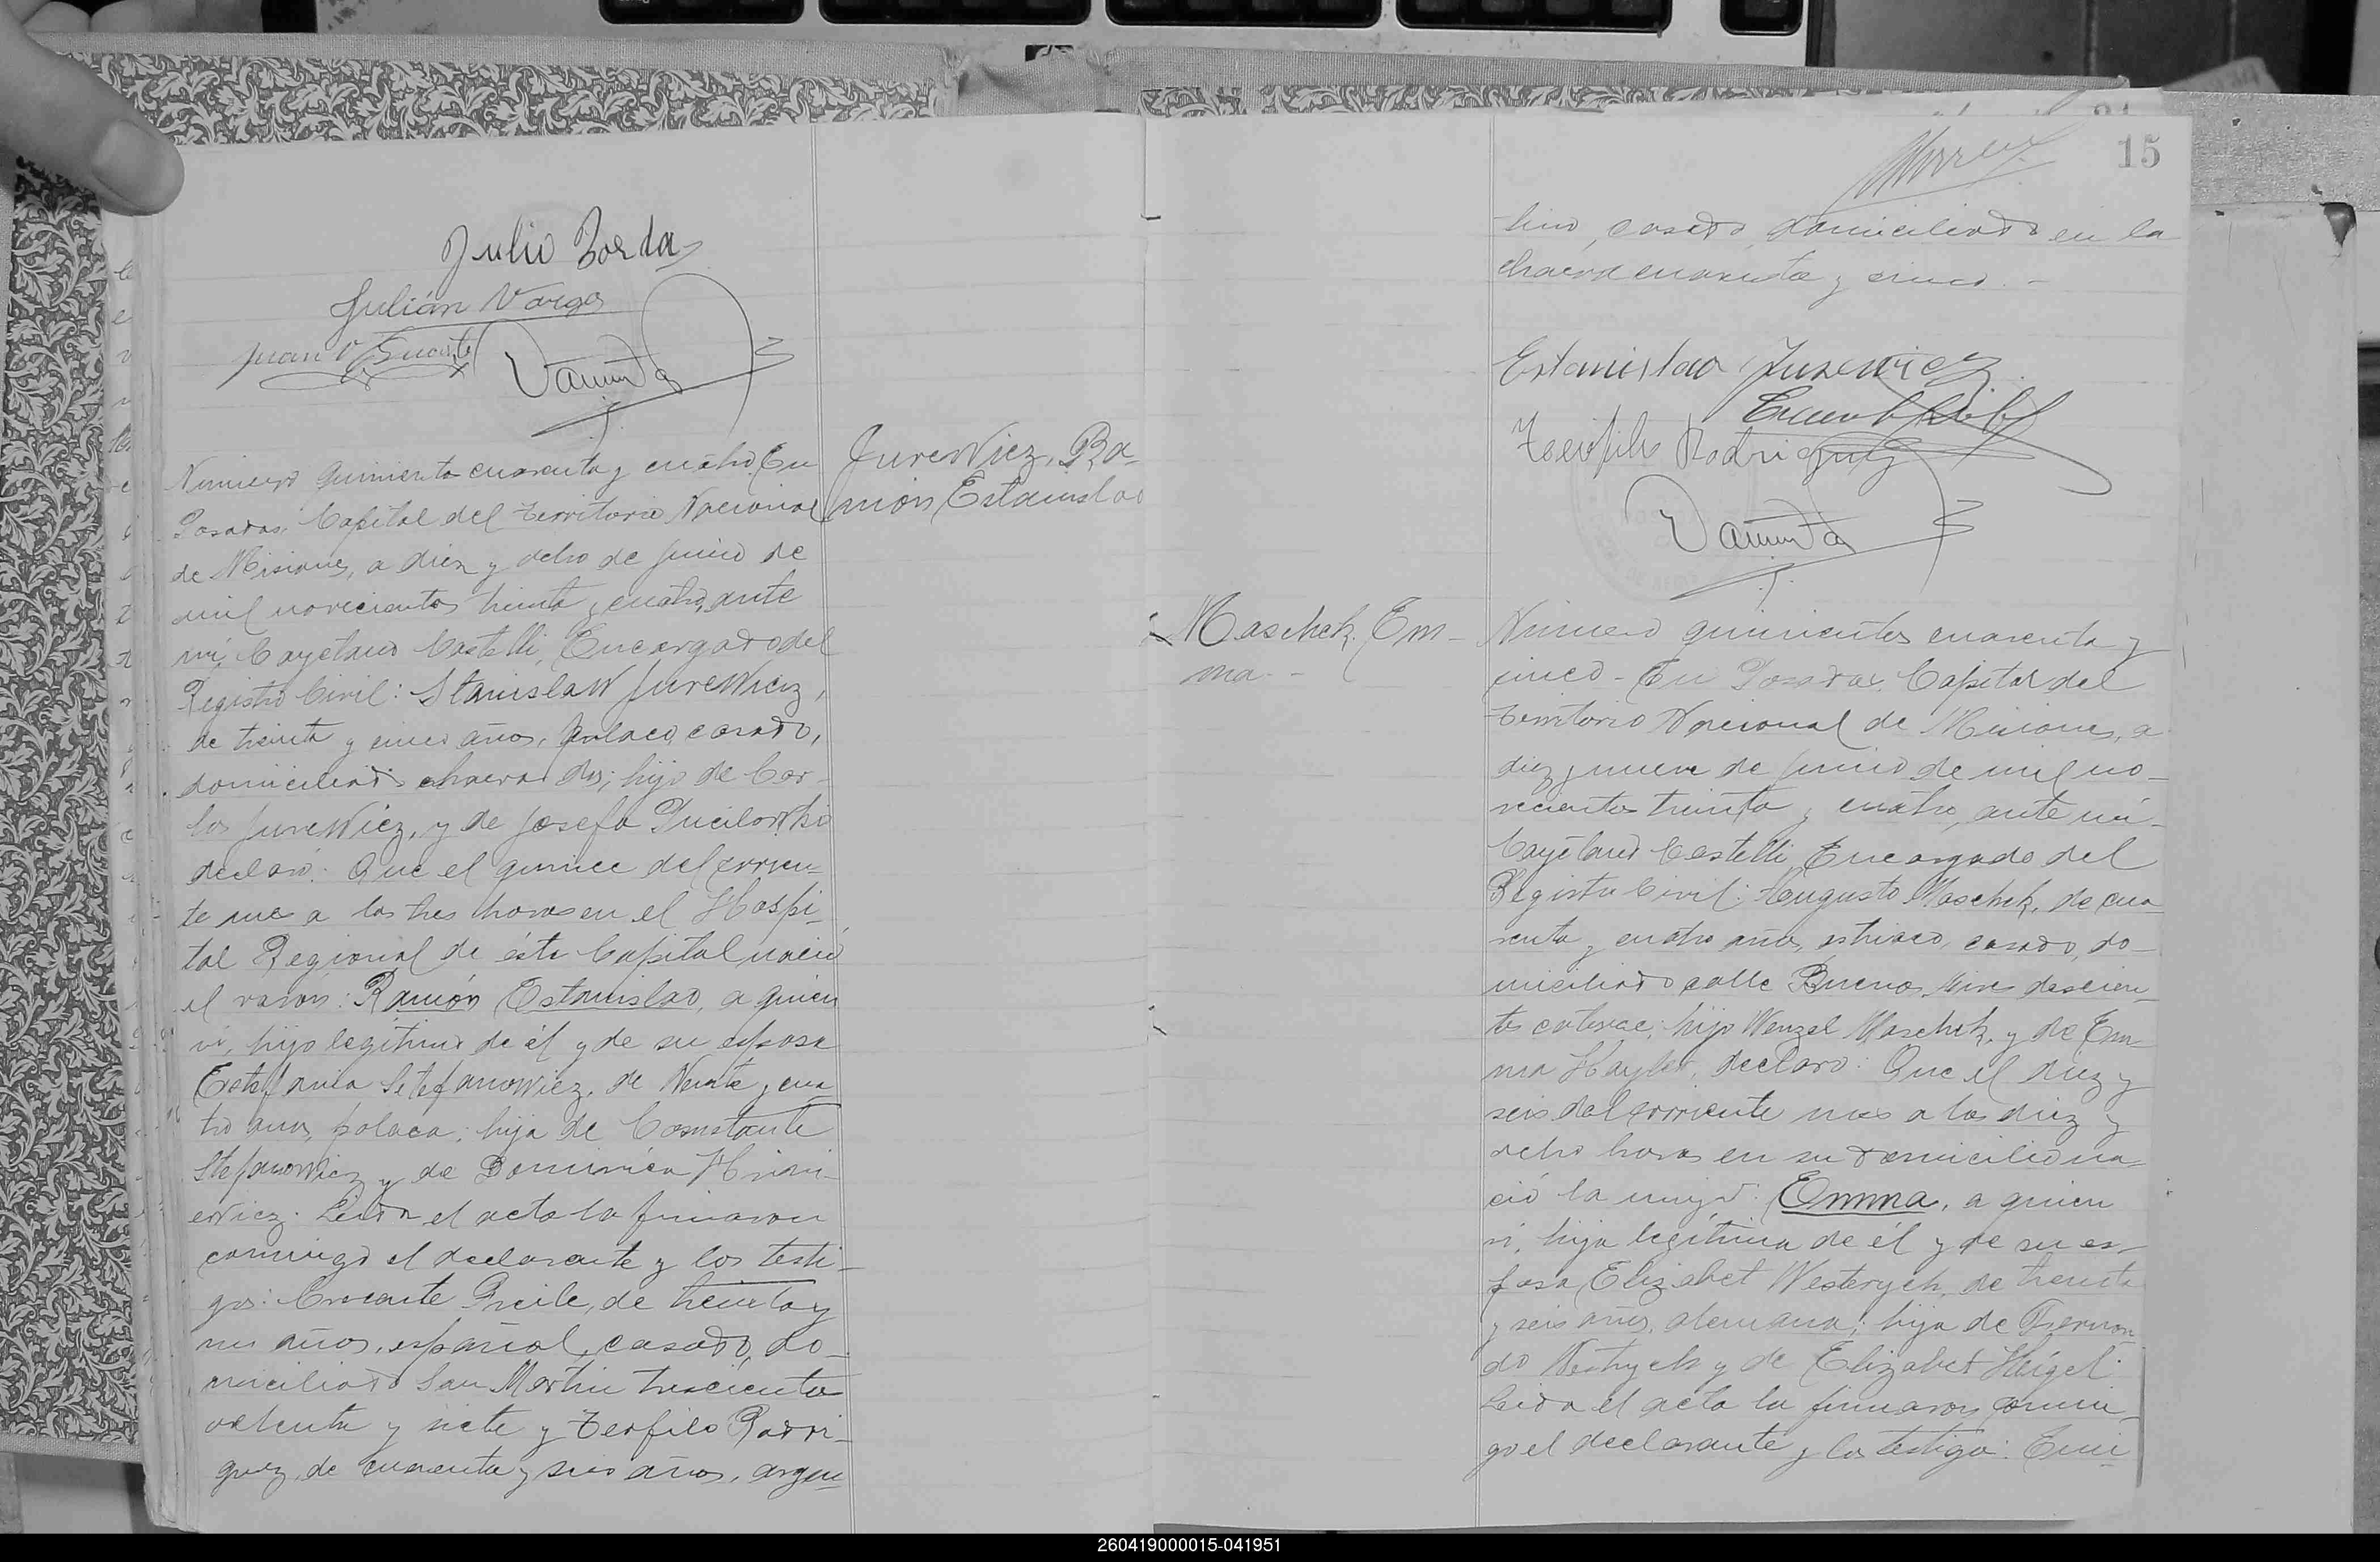 Julio
Julián Vargas
Juan
Número quinientos cuarenta y cuatro. En
Posadas, Capital del Territorio Nacional
de Misiones, a diez y ocho de junio de
mil novecientos treinta y cuatro, ante
mí, Cayetano Castelli, Encargado del
Registro Civil: Stanislaw Jurewicz,
de treinta y cinco años, polaco, casado,
domiciliado chacra dos; hijo de Car-
los Jurewicz, y de Josefa
declaró: Que el quince del corrien-
te mes a las tres horas en el Hospi-
tal Regional de ésta Capital nació
el varón: Ramón Estanislao, a quien
ví, hijo legítimo de él y de su esposa
Estefania Stefanowicz, de veinte y cua-
tro años, polaca; hija de Constante
Stefanowicz y de Dominica
ewicz. Leida el acta la firmaron
conmigo el declarante y los testi-
gos: de treinta y
años, español, casado, do-
miciliado San Martin trescientos
ochenta y siete y Teofilo Rodri-
guez, de cuarenta y seis años, argen-
Jurewicz, Ra-
món Estanislao
15
tino, casado, domiciliado en la
chacra cuarenta y cinco. -
Estanislao Jurewicz
Teofilo Rodriguez
Maschek, Em-
ma. -
Número quinientos cuarenta y
cinco - En Posadas, Capital del
Territorio Nacional de Misiones, a
diez y nueve de junio de mil no-
vecientos treinta y cuatro, ante mí
Cayetano Castelli, Encargado del
Registro Civil: Augusto Maschek, de cua-
renta y cuatro años, astriaco, casado, do-
miciliado calle Buenos Aires doscien-
tos catorce; hijo Wenzel Maschek, y de Em-
ma declaró: Que el diez y
seis del corriente mes a las diez y
ocho horas en su domicilio na-
ció la mujer: Emma, a quien
ví, hija legítima de él y de su es-
posa, Elizabet Westerych, de treinta
y seis años, alemana; hija de Fernan-
do Westrych y de Elizabet Heigel.
Leida el acta la firmaron conmi-
go el declarante y los testigos:
260419000015-041951